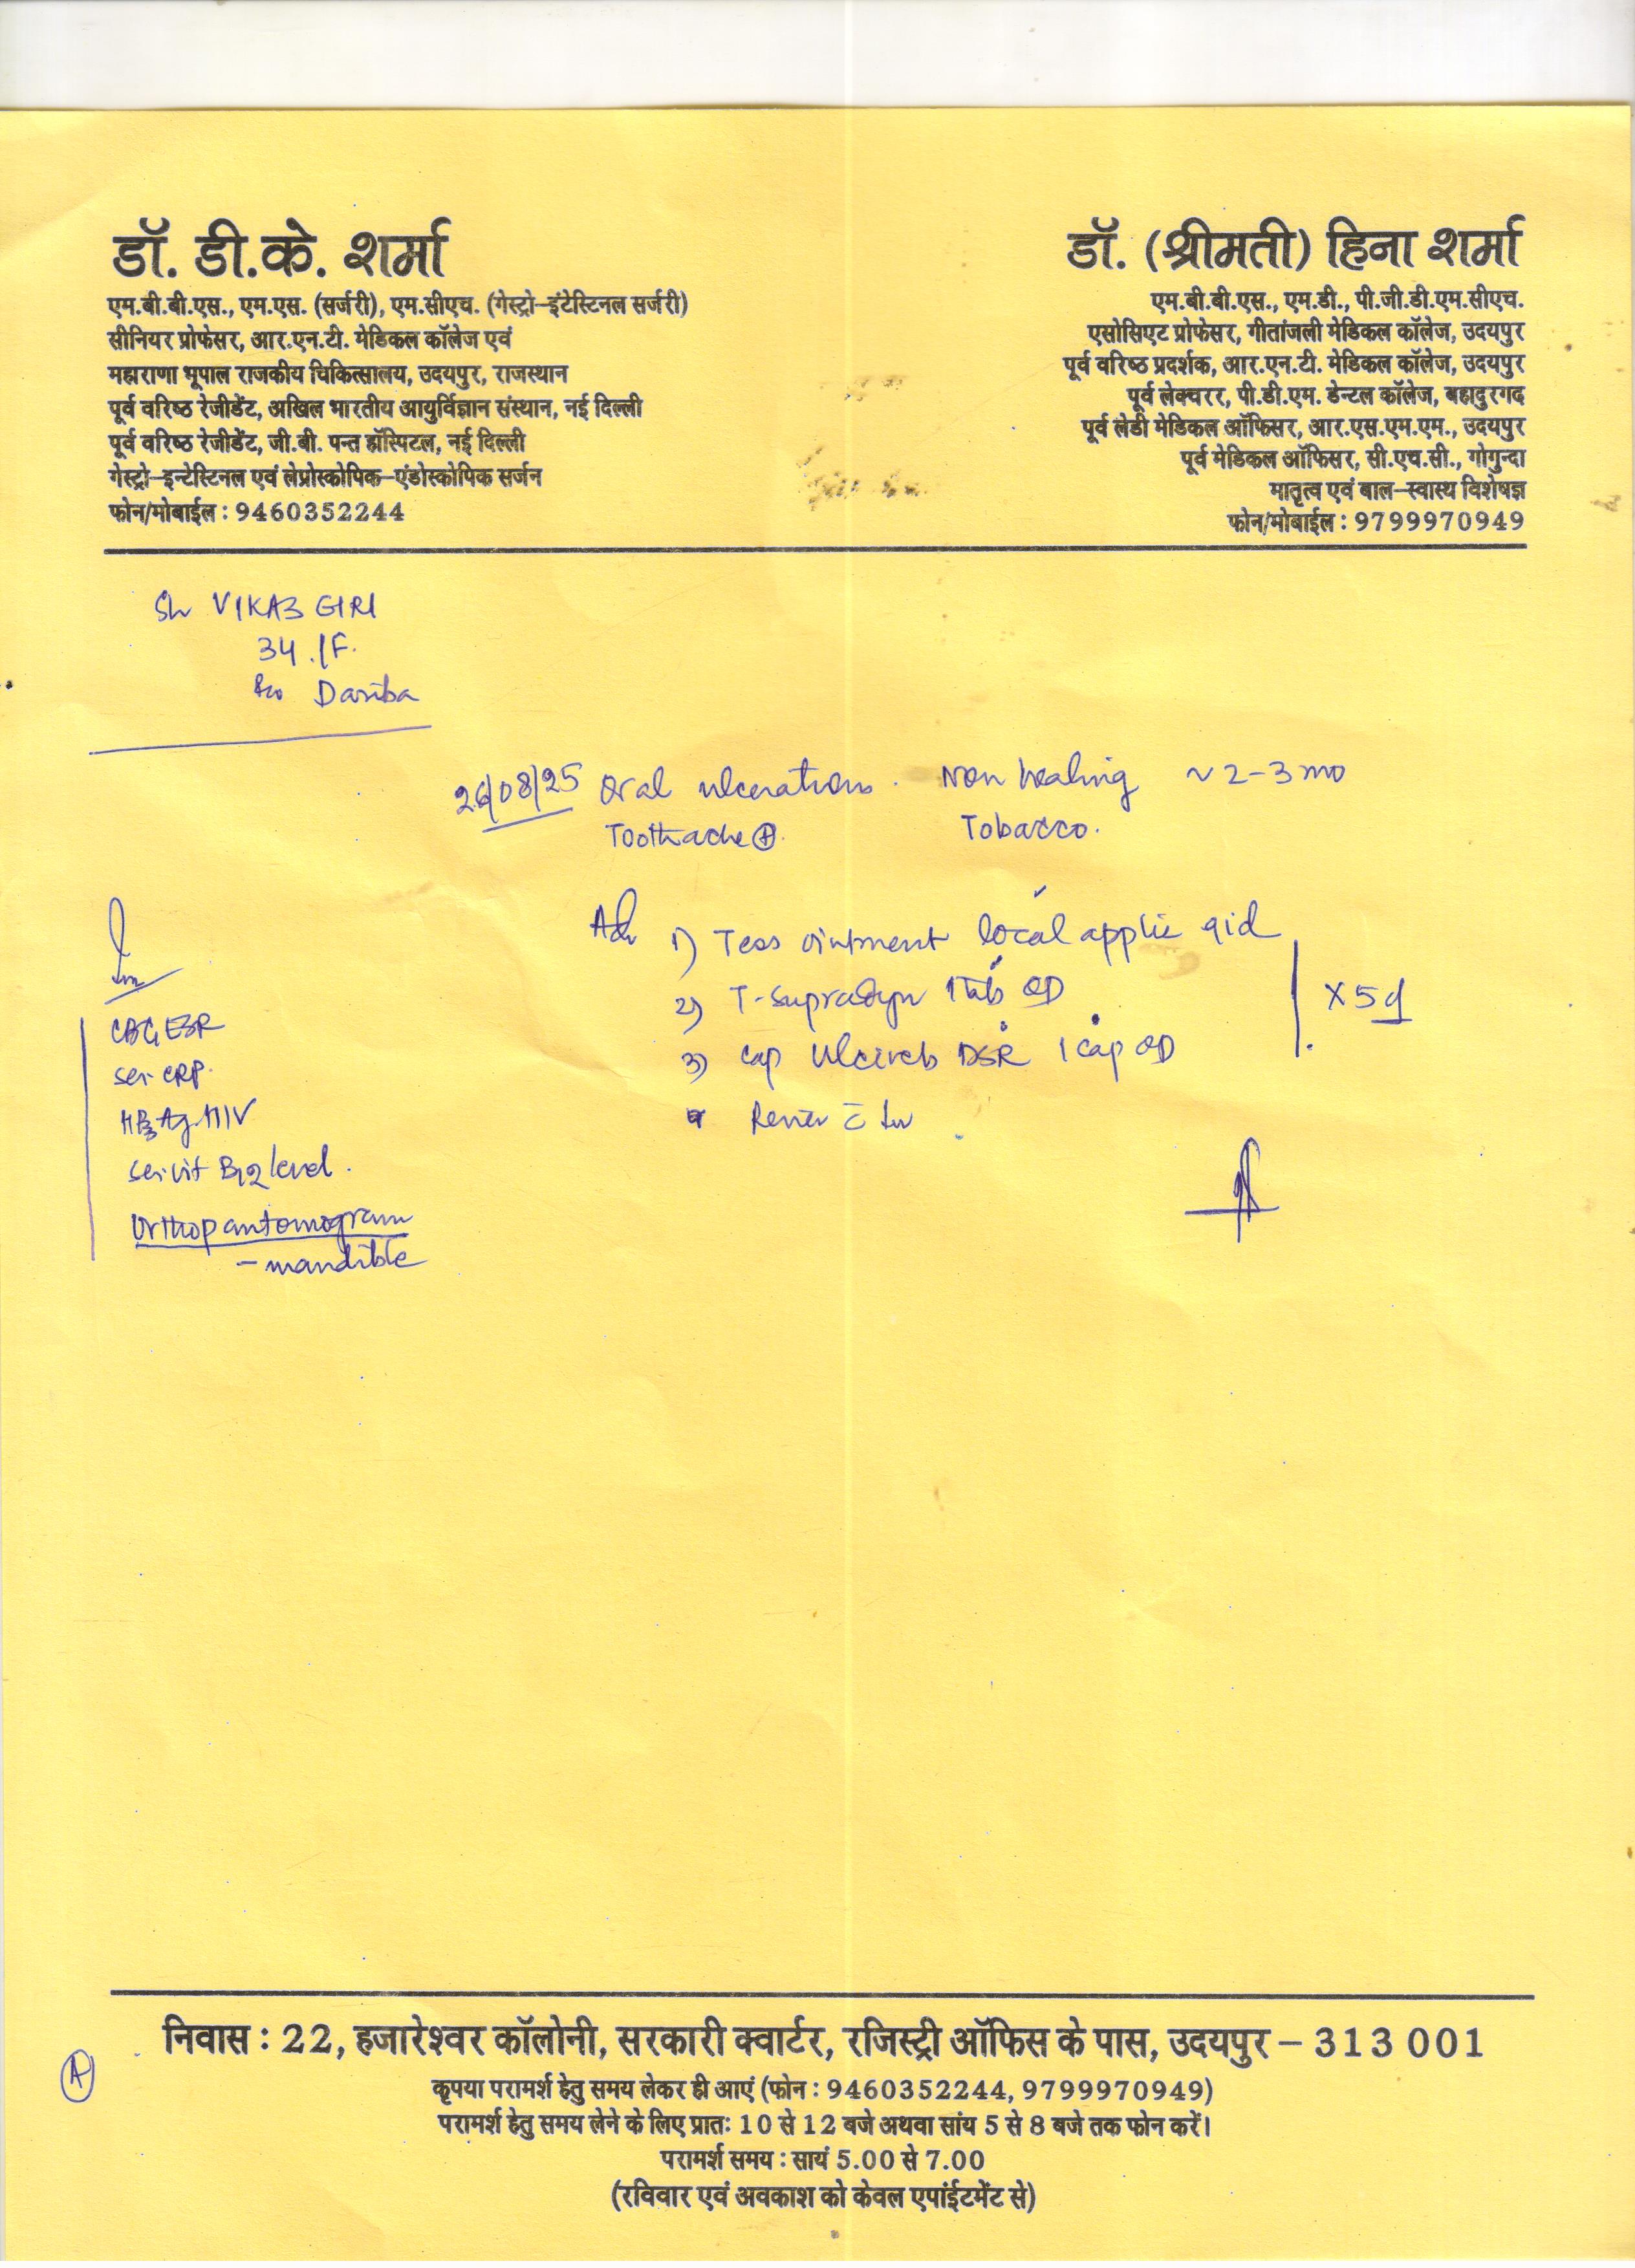 डॉ. डी.के. शर्मा
एम.बी.बी.एस., एम.एस. (सर्जरी), एम.सीएच. (गेस्ट्रो-इंटेस्टिनल सर्जरी)
सीनियर प्रोफेसर, आर.एन.टी. मेडिकल कॉलेज एवं
महाराणा भूपाल राजकीय चिकित्सालय, उदयपुर, राजस्थान
पूर्व वरिष्ठ रेजीडेंट, अखिल भारतीय आयुर्विज्ञान संस्थान, नई दिल्ली
पूर्व वरिष्ठ रेजीडेंट, जी.बी. पन्त हॉस्पिटल, नई दिल्ली
गेस्ट्रो-इन्टेस्टिनल एवं लेप्रोस्कोपिक-एंडोस्कोपिक सर्जन
फोन/मोबाईल : 9460352244
डॉ. (श्रीमती) हिना शर्मा
एम.बी.बी.एस., एम.डी., पी.जी.डी.एम.सीएच.
एसोसिएट प्रोफेसर, गीतांजली मेडिकल कॉलेज, उदयपुर
पूर्व वरिष्ठ प्रदर्शक, आर.एन.टी. मेडिकल कॉलेज, उदयपुर
पूर्व लेक्चरर, पी.डी.एम. डेन्टल कॉलेज, बहादुरगढ
पूर्व लेडी मेडिकल ऑफिसर, आर.एस.एम.एम., उदयपुर
पूर्व मेडिकल ऑफिसर, सी.एच.सी., गोगुन्दा
मातृत्व एवं बाल-स्वास्थ विशेषज्ञ
फोन/मोबाईल : 9799970949
Sh VIKAS GIRI
34./F.
R/o Dariba
26/08/25 Oral ulcerations. Non healing ~2-3 mo
Toothache ⊕. Tobacco.
Adv 1) Tess ointment local applic qid
2) T-Supradyn 1tab OD
3) cap DSR 1 cap OD
x5d
Review c̄ Inv
Inv
CBC, ESR
Ser CRP.
HBsAg, HIV
Ser vit B12 level.
Orthopantomogram
- mandible
निवास : 22, हजारेश्वर कॉलोनी, सरकारी क्वार्टर, रजिस्ट्री ऑफिस के पास, उदयपुर - 313 001
A
कृपया परामर्श हेतु समय लेकर ही आएं (फोन : 9460352244, 9799970949)
परामर्श हेतु समय लेने के लिए प्रातः 10 से 12 बजे अथवा सांय 5 से 8 बजे तक फोन करें।
परामर्श समय : सायं 5.00 से 7.00
(रविवार एवं अवकाश को केवल एपांईटमेंट से)